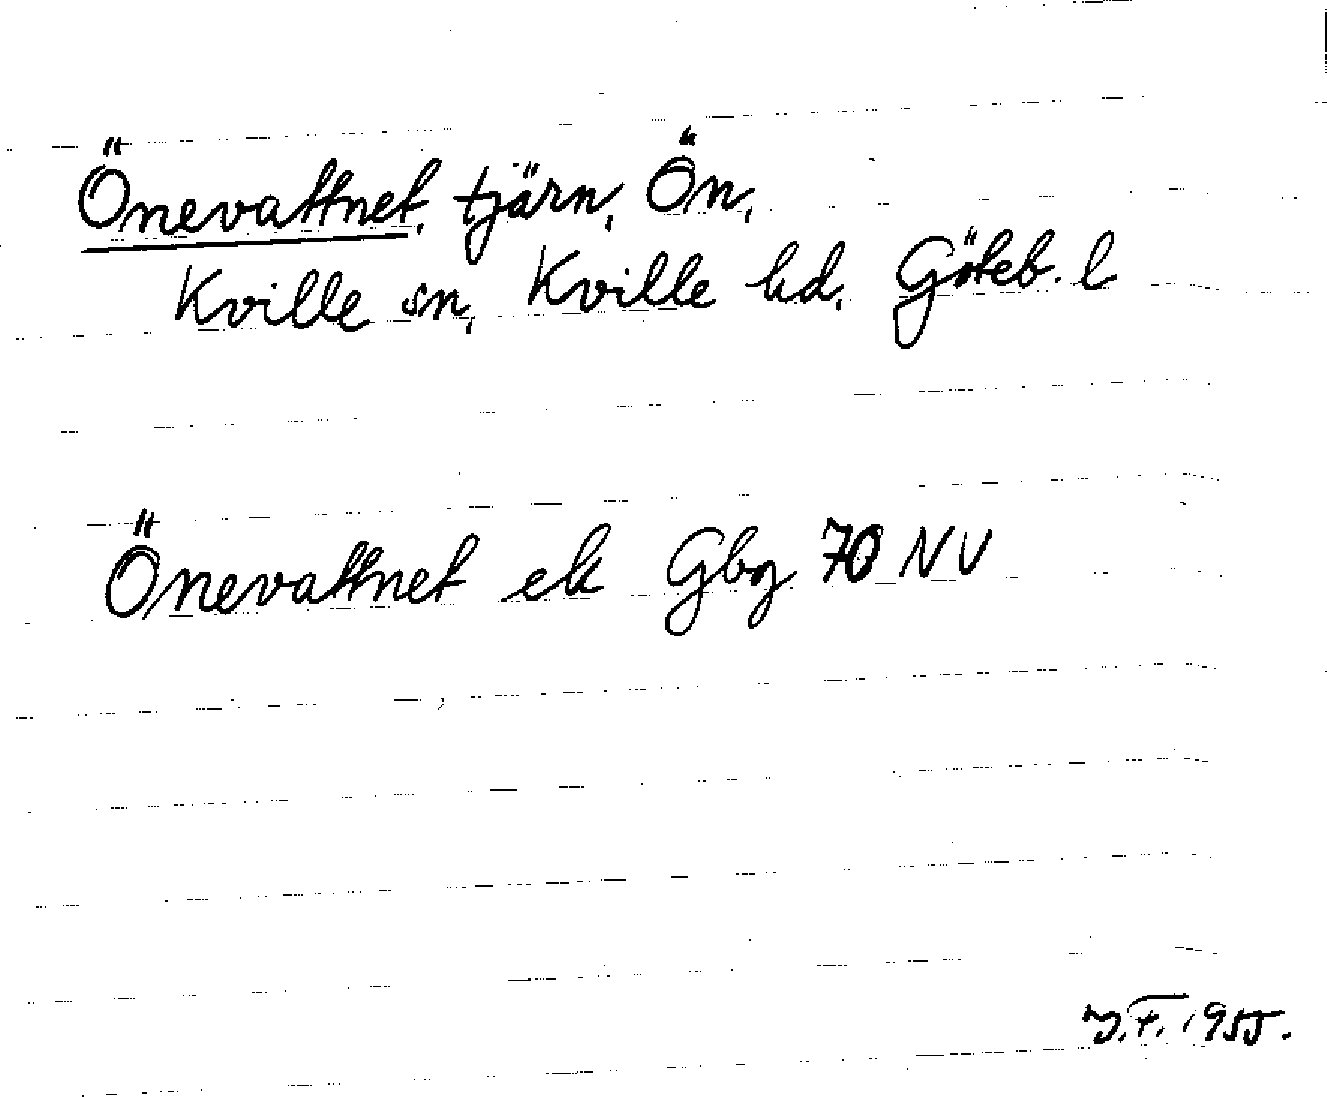 Önevattnet, tjärn, Ön,
Kville sn, Kville hd, Göteb. l
Önevattnet ek Gbg 70 NV
J.F. 1955.